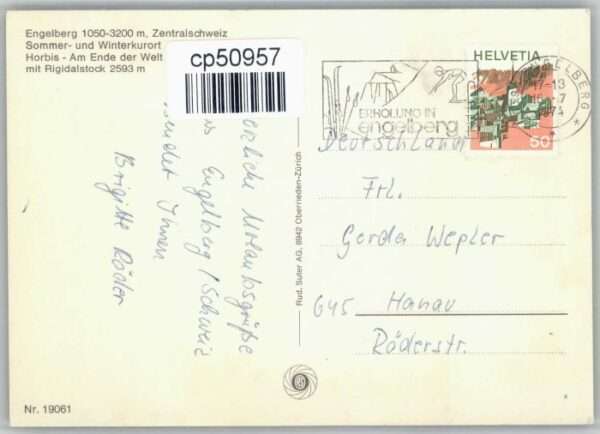 Engelberg 1050-3200 m, Zentralschweiz
Sommer- und Winterkurort
Horbis - Am Ende der Welt
mit Rigidalstock 2593 m
cp50957
HELVETIA
50
ERHOLUNG IN
engelberg
ENGELBERG
17-13
1974
Herzliche Urlaubsgrüße
aus Engelberg / Schweiz
sendet Ihnen
Brigitte Röder
Rud. Suter AG, 8942 Oberrieden-Zürich
Deutschland
Frl.
Gerda Wepler
645 Hanau
Röderstr.
Nr. 19061